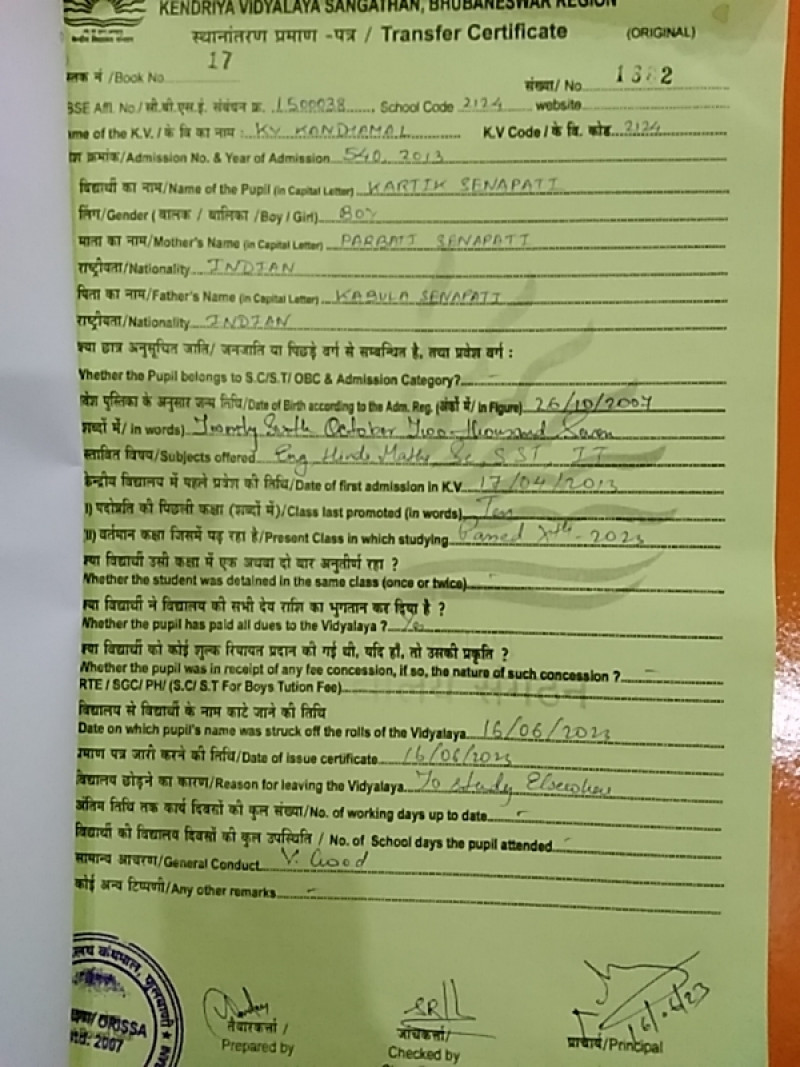 KENDRIYA VIDYALAYA SANGATHAN, BHUBANESWAR REGION
केन्द्रीय विद्यालय संगठन
स्थानांतरण प्रमाण -पत्र / Transfer Certificate (ORIGINAL)
स्तक नं /Book No. 17 संख्या/ No 1382
BSE Affl. No / सी.बी.एस.ई. संबंधन क्र. 1500038 School Code 2124 website
ame of the K.V. / के वि का नाम : KV KANDHAMAL K.V Code / के वि. कोड. 2124
श क्रमांक/Admission No. & Year of Admission 540, 2013
विद्यार्थी का नाम/Name of the Pupil (in Capital Letter) KARTIK SENAPATI
लिंग/Gender ( बालक / बालिका /Boy / Girl) BOY
माता का नाम/Mother's Name (in Capital Letter) PARBATI SENAPATI
राष्ट्रीयता/Nationality INDIAN
पिता का नाम/Father's Name (in Capital Letter) KABULA SENAPATI
राष्ट्रीयता/Nationality INDIAN
क्या छात्र अनुसूचित जाति/ जनजाति या पिछड़े वर्ग से सम्बन्धित है, तथा प्रवेश वर्ग :
Whether the Pupil belongs to S.C/S.T/ OBC & Admission Category? -
वेश पुस्तिका के अनुसार जन्म तिथि/Date of Birth according to the Adm. Reg. (अंकों में/ in Figure) 26/10/2007
शब्दों में/ in words) Twenty Sixth October Two thousand Seven
स्तावित विषय/Subjects offered Eng Hindi Maths Sc, SST, IT
केन्द्रीय विद्यालय में पहले प्रवेश की तिथि/Date of first admission in K.V. 17/04/2013
I) पदोन्नति की पिछली कक्षा (शब्दों में)/Class last promoted (in words) Ten
II) वर्तमान कक्षा जिसमें पढ़ रहा है/Present Class in which studying Passed Xth - 2023
क्या विद्यार्थी उसी कक्षा में एक अथवा दो बार अनुतीर्ण रहा ?
Whether the student was detained in the same class (once or twice) -
क्या विद्यार्थी ने विद्यालय की सभी देय राशि का भुगतान कर दिया है ?
Whether the pupil has paid all dues to the Vidyalaya ? Yes
क्या विद्यार्थी को कोई शुल्क रियायत प्रदान की गई थी, यदि हाँ, तो उसकी प्रकृति ?
Whether the pupil was in receipt of any fee concession, if so, the nature of such concession ? -
RTE / SGC/ PH/ (S.C/ S.T For Boys Tution Fee)
विद्यालय से विद्यार्थी के नाम काटे जाने की तिथि
Date on which pupil's name was struck off the rolls of the Vidyalaya 16/06/2023
प्रमाण पत्र जारी करने की तिथि/Date of issue certificate 16/06/2023
विद्यालय छोड़ने का कारण/Reason for leaving the Vidyalaya To Study Elsewhere
अंतिम तिथि तक कार्य दिवसों की कुल संख्या/No. of working days up to date -
विद्यार्थी की विद्यालय दिवसों की कुल उपस्थिति / No. of School days the pupil attended -
सामान्य आचरण/General Conduct V. Good
कोई अन्य टिप्पणी/Any other remarks -
लय कंधमाल, फुलबाणी
ORISSA
td. 2007
16/6/23
तैयारकर्त्ता / जांचकर्त्ता/ प्राचार्य/Principal
Prepared by Checked by